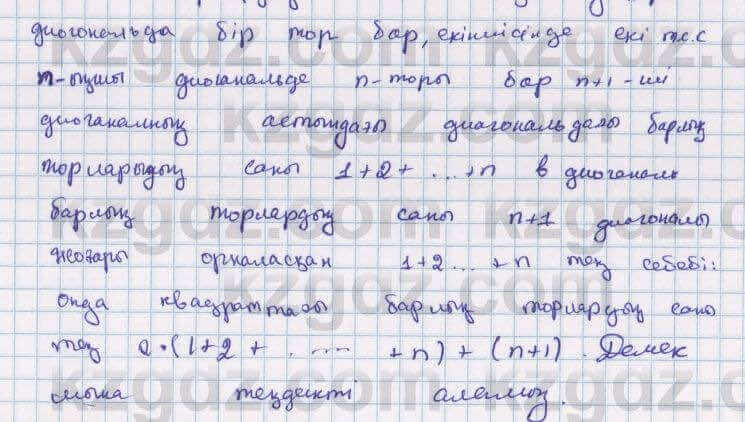 диогональда бір тор бар, екіншісінде екі т.с.с
n-оқушы диоганальде n-торы бар n+1-ші
диоганалның астындағы диагональ далы барлық
торларыдың саны 1+2+ ...+n в диогональ
барлық торлардың саны n+1 диогоналы
жоғары орналасқан 1+2...+n тең себебі:
Онда квадраттағы барлық торлардың саны
тең 2•(1+2+ ..... +n)+(n+1). Демек
мына теңдікті аламыз.
kzgdz.com